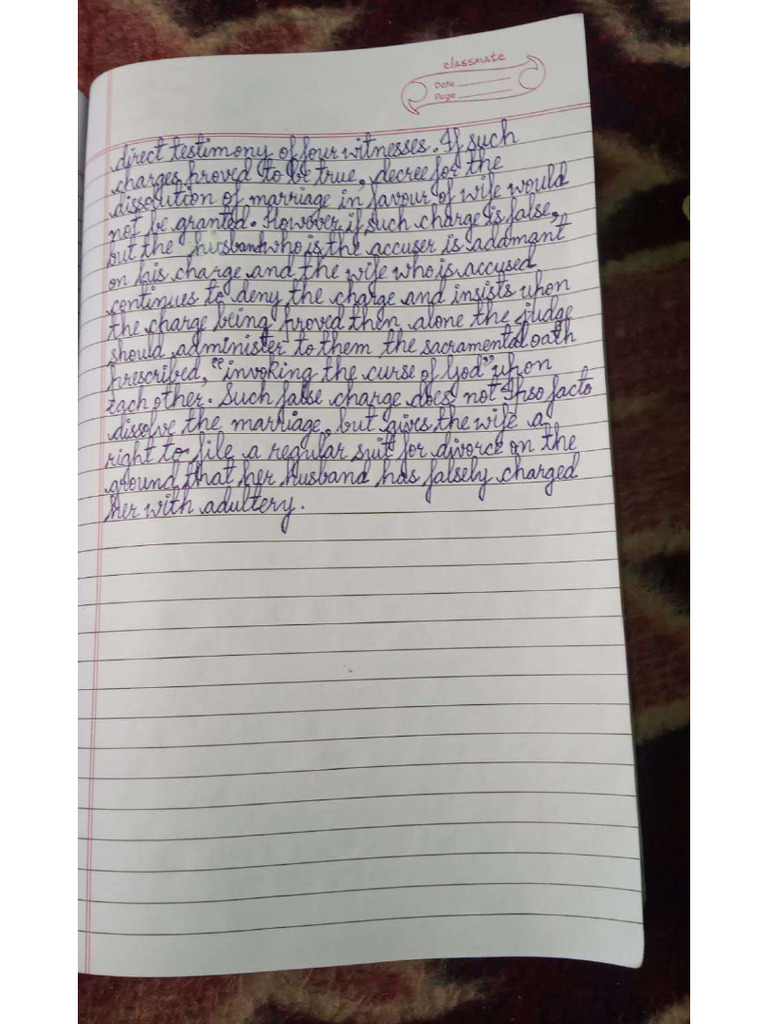 classmate
Date
Page
direct testimony of four witnesses. If such
charges proved to be true, decree for the
dissolution of marriage in favour of wife would
not be granted. However if such charge is false,
but the husband who is the accuser is addmant
on his charge and the wife who is accused
continues to deny the charge and insists upon
the charge being proved then alone the judge
should administer to them the sacramental oath
prescribed, "invoking the curse of God" upon
each other. Such false charge does not Ipso facto
dissolve the marriage, but gives the wife a
right to file a regular suit for divorce on the
ground that her husband has falsely charged
her with adultery.